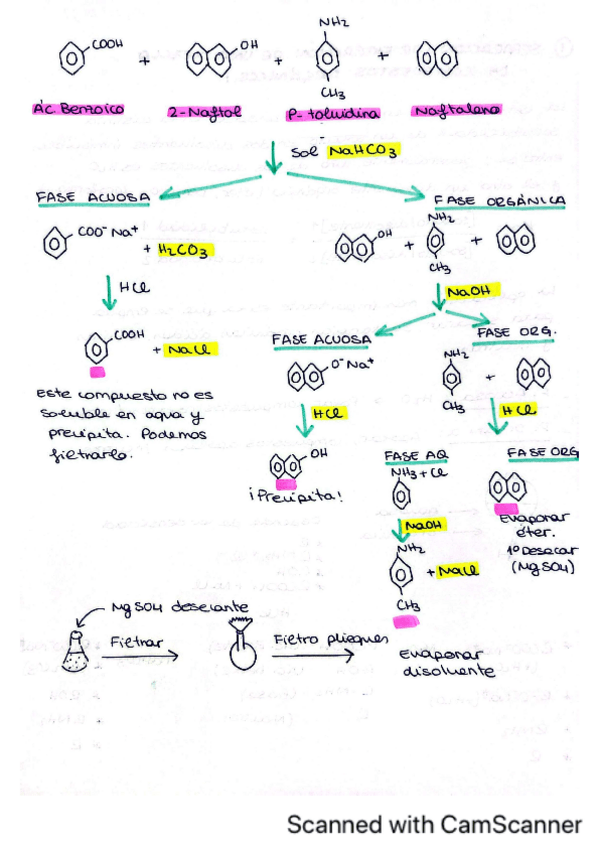 COOH + OH + NH2 +
CH3
Ác. Benzoico 2-Naftol P-toluidina Naftaleno
Sol NaHCO3
FASE ACUOSA FASE ORGÁNICA
COO⁻ Na⁺ + H2CO3
OH + NH2 +
CH3
HCl
NaOH
COOH + NaCl
FASE ACUOSA FASE ORG.
O⁻ Na⁺
NH2 +
CH3
Este compuesto no es
soluble en agua y
precipita. Podemos
filtrarlo.
HCl
HCl
OH
¡Precipita!
FASE AQ FASE ORG
NH3 + Cl
NaOH
Evaporar
éter.
1º Desecar
(MgSO4)
NH2
+ NaCl
CH3
MgSO4 desecante
Filtrar Filtro pliegues
Evaporar
disolvente
Scanned with CamScanner